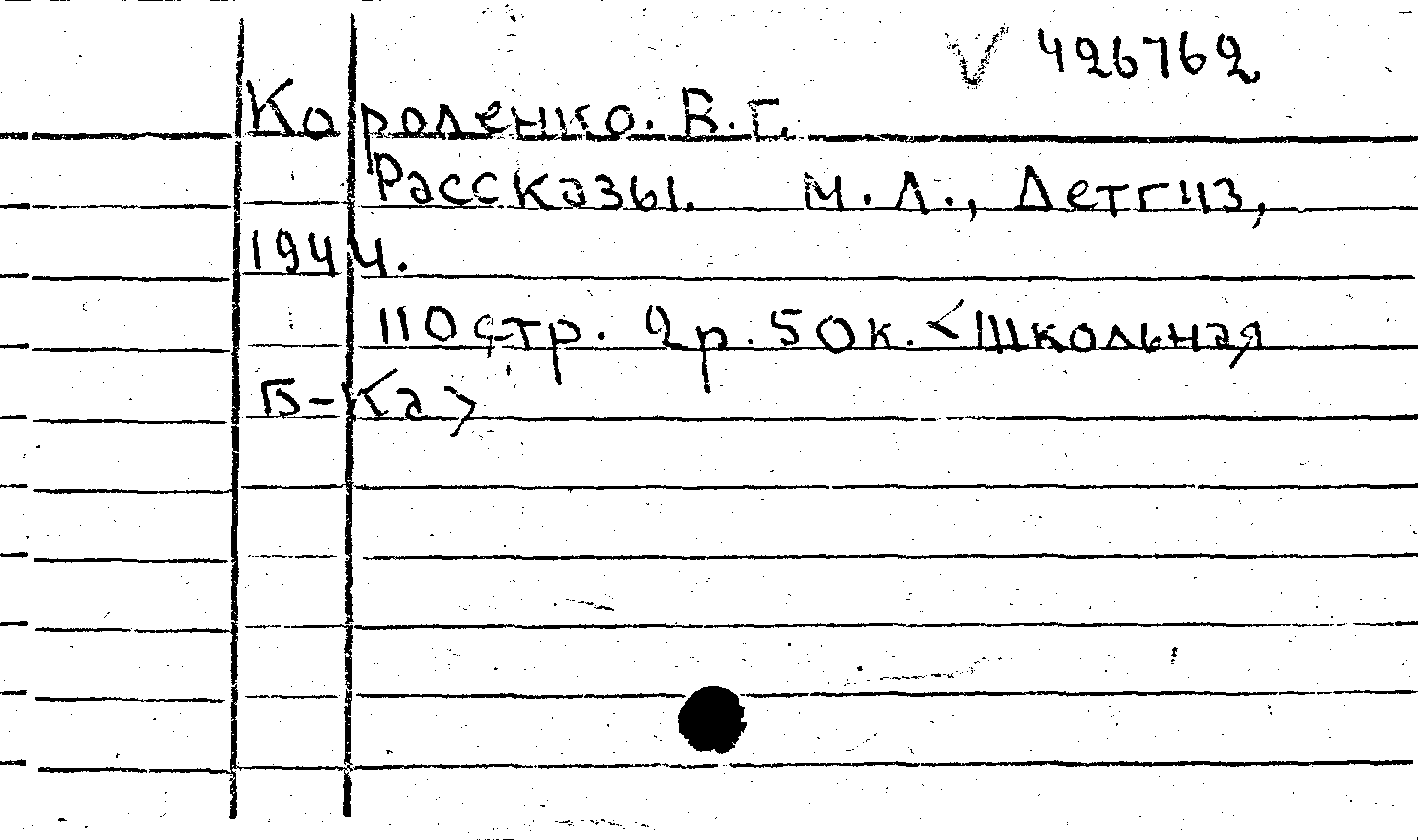 V 426762
Короленко. В.Г.
Рассказы. М.Л., Детгиз,
1944.
110 стр. 2р. 50к. <Школьная
Б-ка>